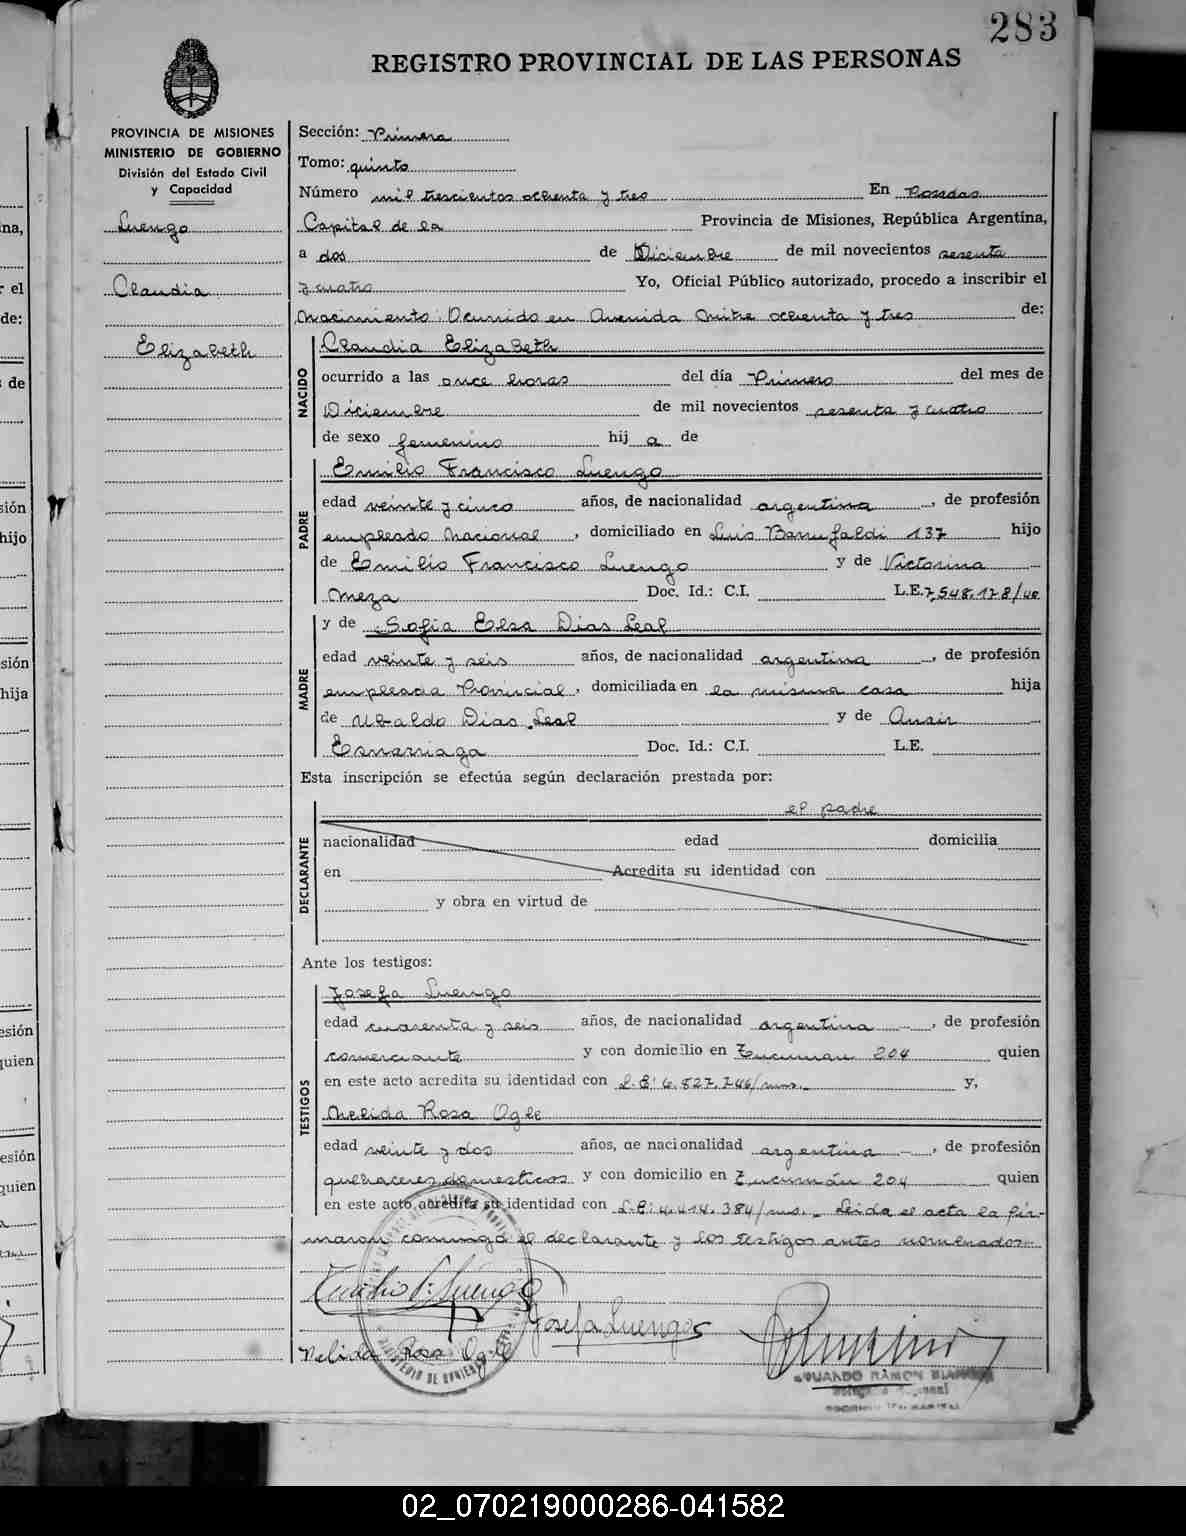 283
REGISTRO PROVINCIAL DE LAS PERSONAS
PROVINCIA DE MISIONES
MINISTERIO DE GOBIERNO
División del Estado Civil
y Capacidad
Luengo
Claudia
Elizabeth
Sección: Primera
Tomo: quinto
Número mil trescientos ochenta y tres En Posadas
Capital de la Provincia de Misiones, República Argentina,
a dos de Diciembre de mil novecientos sesenta
y cuatro Yo, Oficial Público autorizado, procedo a inscribir el
Nacimiento: Ocurrido en Avenida Mitre ochenta y tres de:
NACIDO
Claudia Elizabeth
ocurrido a las once horas del día Primero del mes de
Diciembre de mil novecientos sesenta y cuatro
de sexo femenino hij a de
PADRE
Emilio Francisco Luengo
edad veinte y cinco años, de nacionalidad argentina, de profesión
empleado Nacional, domiciliado en Luis 137 hijo
de Emilio Francisco Luengo y de Victorina
Meza Doc. Id.: C.I. L.E. 7,548.178/
MADRE
y de Sofia Elsa Dias Leal
edad veinte y seis años, de nacionalidad argentina, de profesión
empleada Provincial, domiciliada en la misma casa hija
de Ubaldo Dias Leal y de
Doc. Id.: C.I. L.E.
Esta inscripción se efectúa según declaración prestada por:
DECLARANTE
el padre
nacionalidad edad domicilia
en Acredita su identidad con
y obra en virtud de
Ante los testigos:
TESTIGOS
Josefa Luengo
edad cuarenta y seis años, de nacionalidad argentina, de profesión
comerciante y con domicilio en Tucuman 204 quien
en este acto acredita su identidad con L.E: 6.827.746/ms. y,
Nelida Rosa Ogle
edad veinte y dos años, de nacionalidad argentina, de profesión
quehaceres domesticos y con domicilio en Tucumán 204 quien
en este acto acredita su identidad con L.E: 4.414.384/ms. Leida el acta la fir-
maron conmigo el declarante y los testigos antes nombrados
Emilio F. Luengo
Josefa Luengo
Nelida Rosa Ogle
RAMON
02_070219000286-041582